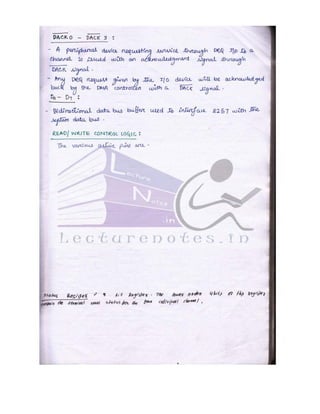 DACK0 - DACK3 :
- A peripheral device requesting service through DRQ I/P to a
channel is issued with an acknowledgement signal through
DACK signal.
- Any DRQ request given by the I/O device will be acknowledged
back by the DMA controller with a DACK signal.
D0 - D7 :
- Bidirectional data bus buffer used to interface 8257 with the
system data bus.
READ/WRITE CONTROL LOGIC :
The various active pins are -
Lecture
Notes
.in
Lecturenotes.in
Status Register : 8 bit Register. The lower order 4 bits of the register
contain the terminal count status for the four individual channel.